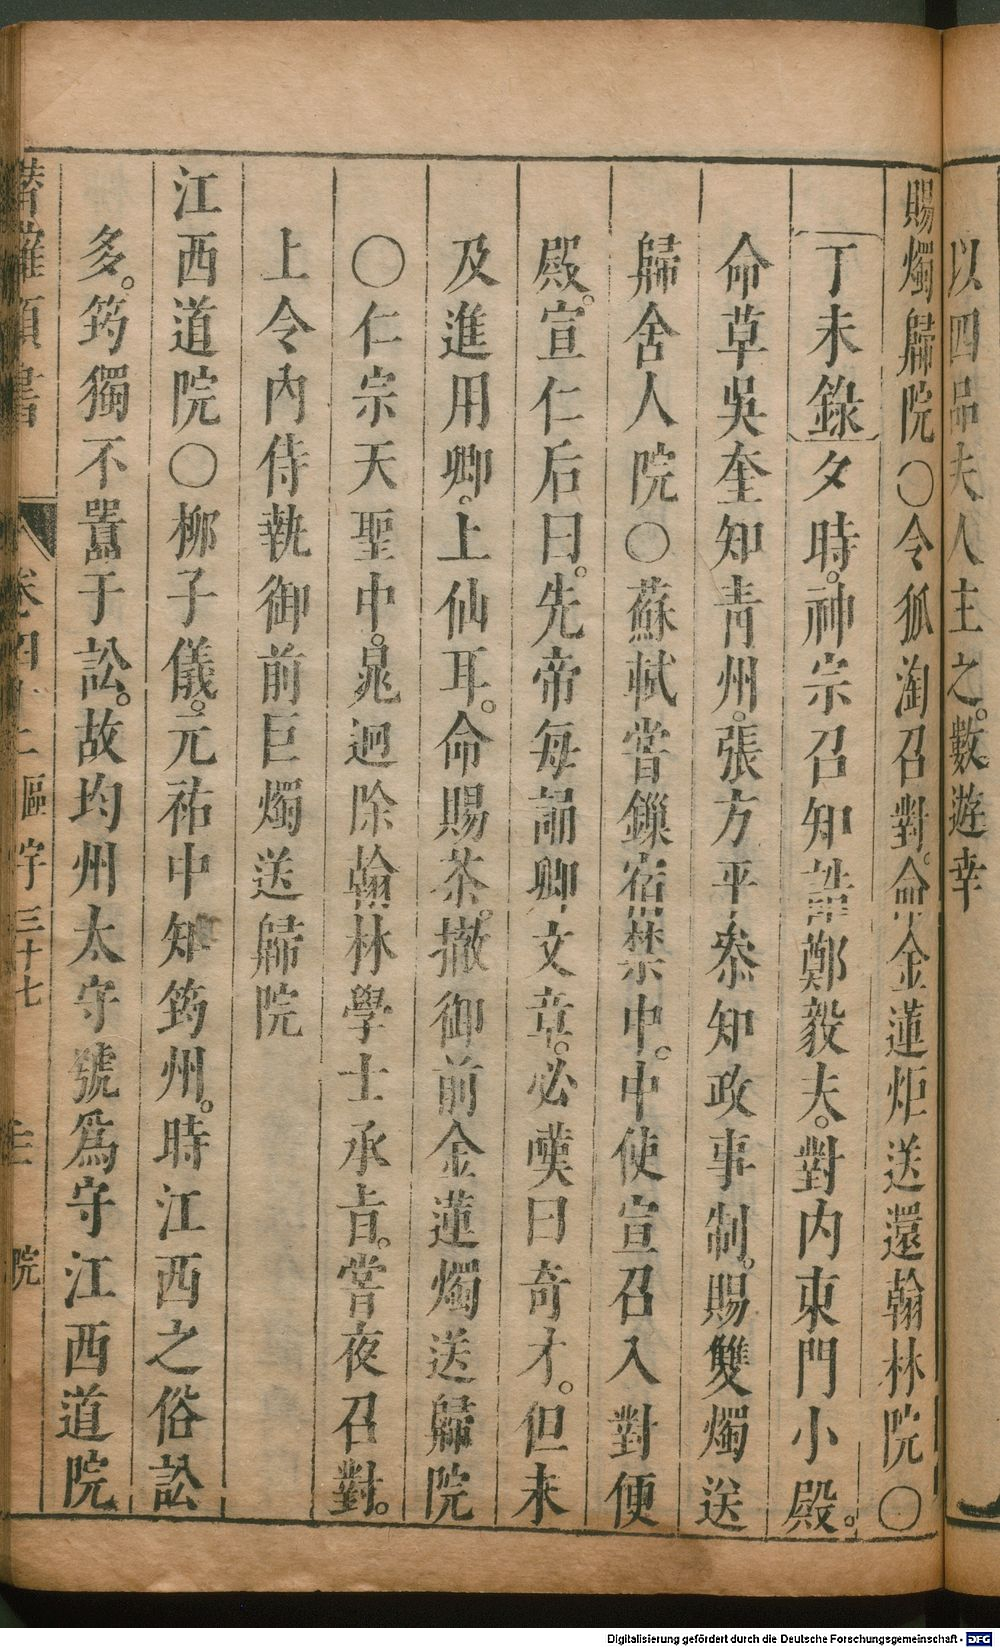 以四品夫人主之。數遊幸
賜燭歸院〇令狐淘召對。命金蓮炬送還翰林院〇
丁未錄夕時。神宗召知制誥鄭毅夫。對内東門小殿。
命草吳奎知青州。張方平叅知政事制。賜雙燭送
歸舍人院〇蘇軾嘗鏁宿禁中。中使宣召入對便
殿。宣仁后曰。先帝每誦卿文章。必嘆曰奇才。但未
及進用卿。上仙耳。命賜茶。撤御前金蓮燭送歸院
〇仁宗天聖中。晁迥除翰林學士承旨。嘗夜召對。
上令内侍執御前巨燭送歸院
江西道院〇柳子儀。元祐中知筠州。時江西之俗訟
多。筠獨不嚚于訟。故均州太守號爲守江西道院
卷四 上樞 字三十七 院
Digitalisierung gefördert durch die Deutsche Forschungsgemeinschaft - DFG